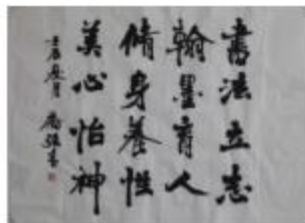 書法立志
翰墨育人
脩身養性
美心怡神